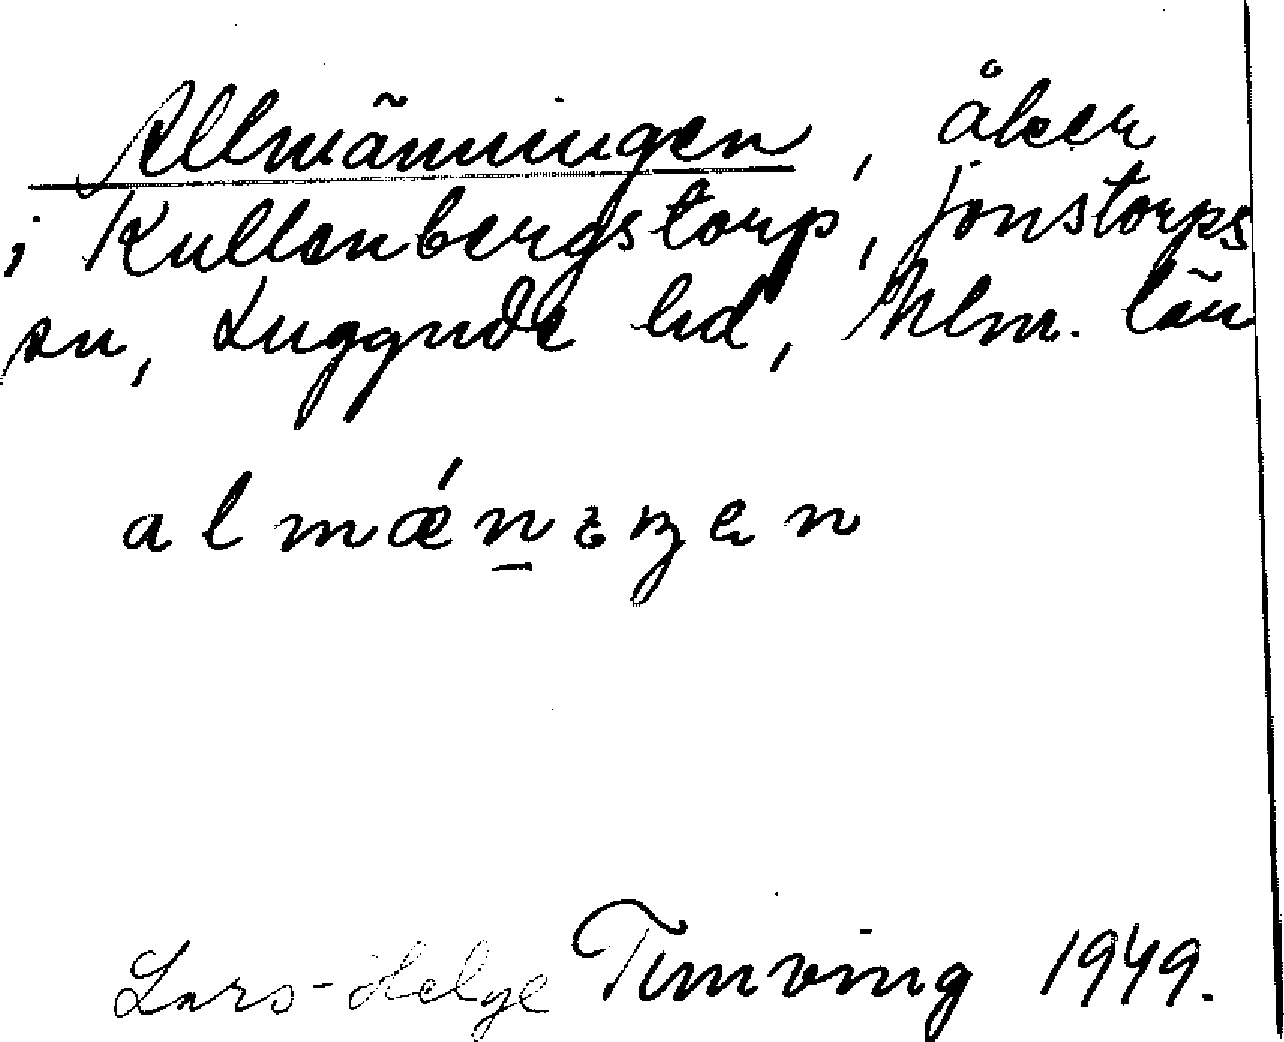 Allmänningen, åker
i Kullenbergstorp, Jonstorps
sn, Luggude hd, Mlm. län
almǽn̲ɩŋen
Lars-Helge Timving 1949.